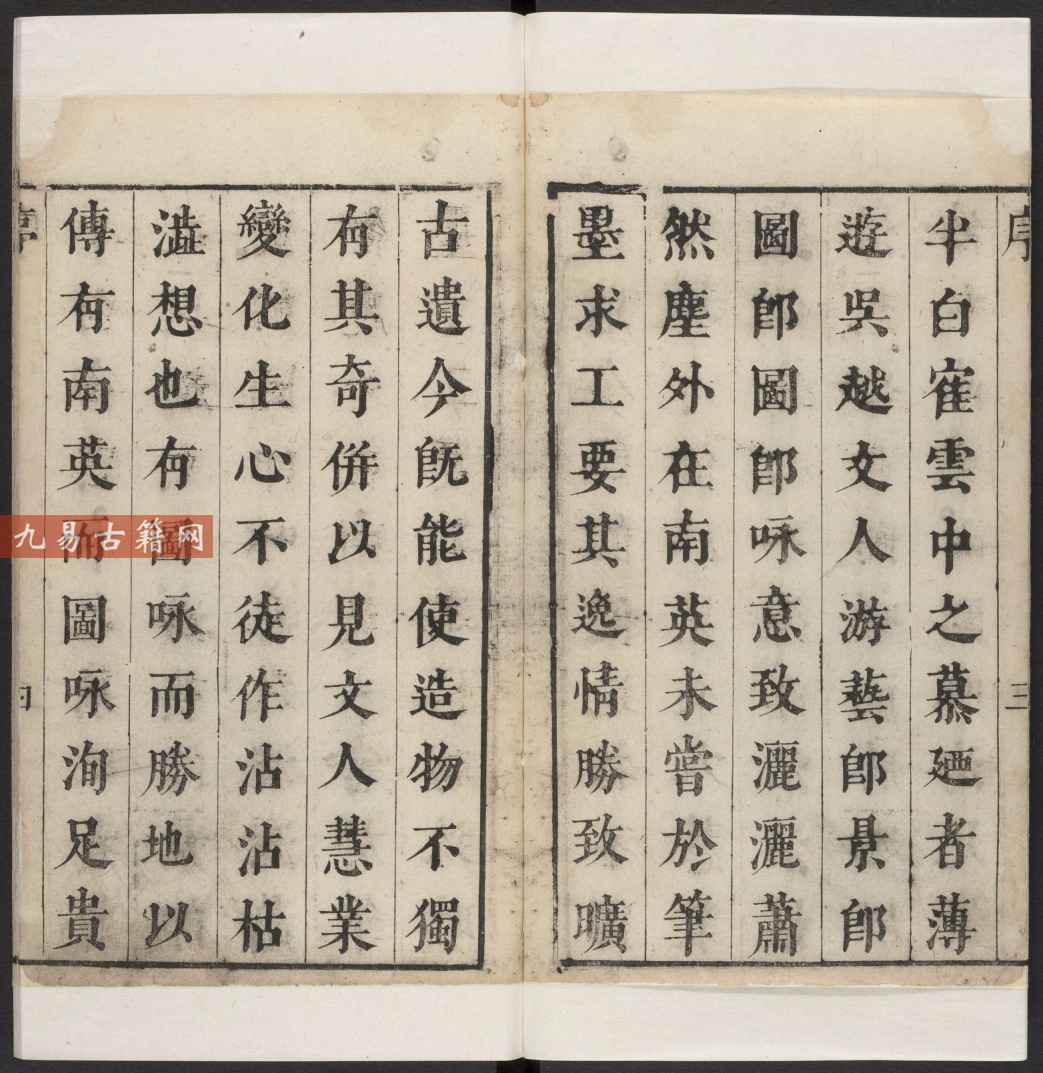 序 三
半白寉雲中之慕廼者薄
遊吳越文人游藝卽景卽
圖卽圖卽咏意致灑灑蕭
然塵外在南英未嘗於筆
墨求工要其逸情勝致曠
古遺今旣能使造物不獨
有其奇併以見文人慧業
變化生心不徒作沾沾枯
澁想也有圖咏而勝地以
傳有南英而圖咏洵足貴
序
九易古籍网